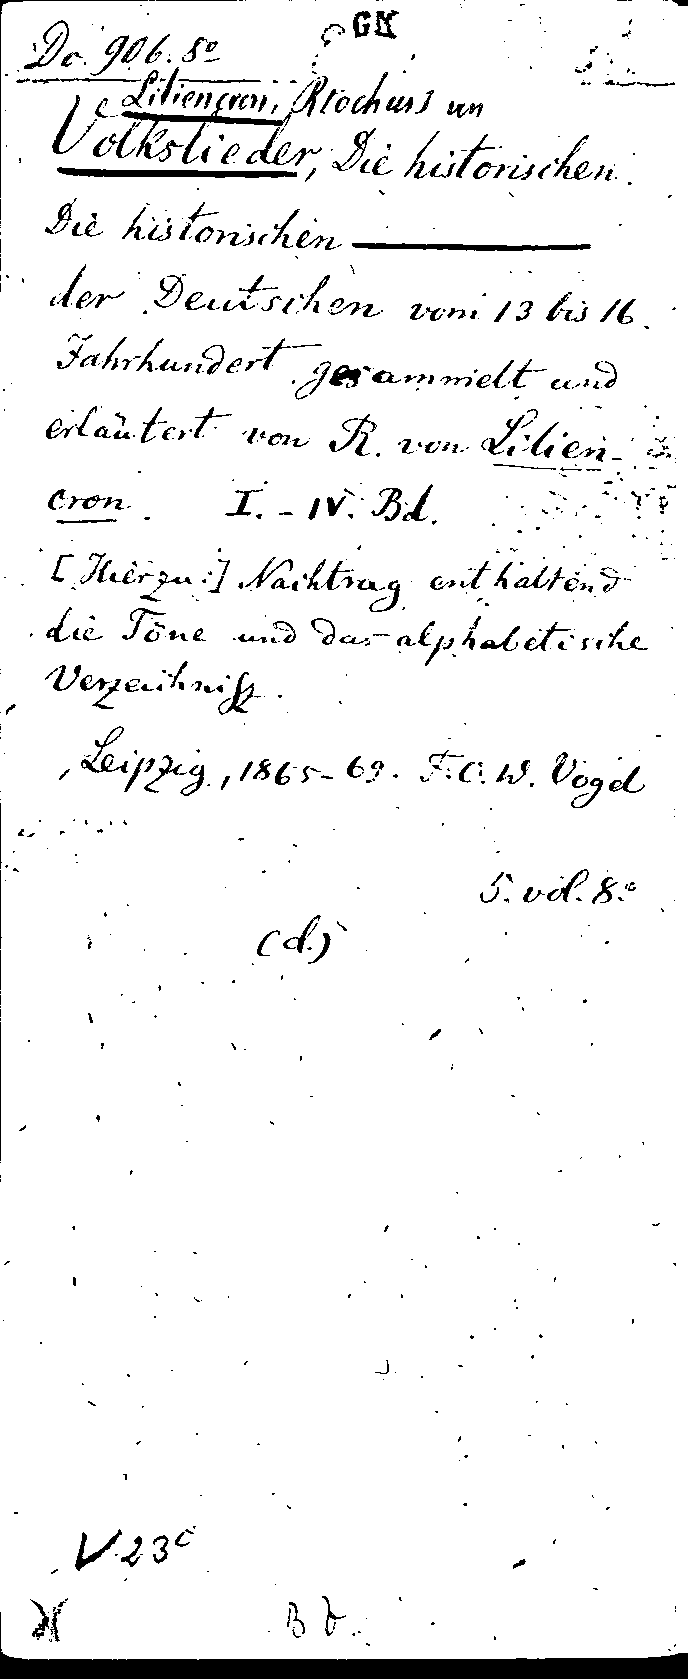 GK
Do. 906. 8º
Liliencron, R[ochus] von
Volkslieder, Die historischen.
Die historischen ———
der Deutschen vom 13 bis 16.
Jahrhundert gesammelt und
erläutert von R. von Lilien-
cron. I. - IV. Bd.
[Hierzu:] Nachtrag enthaltend
die Töne und das alphabetische
Verzeichniß.
Leipzig, 1865-69. F.C.W. Vogel
5. vol. 8.º
(d.)
V 23 c